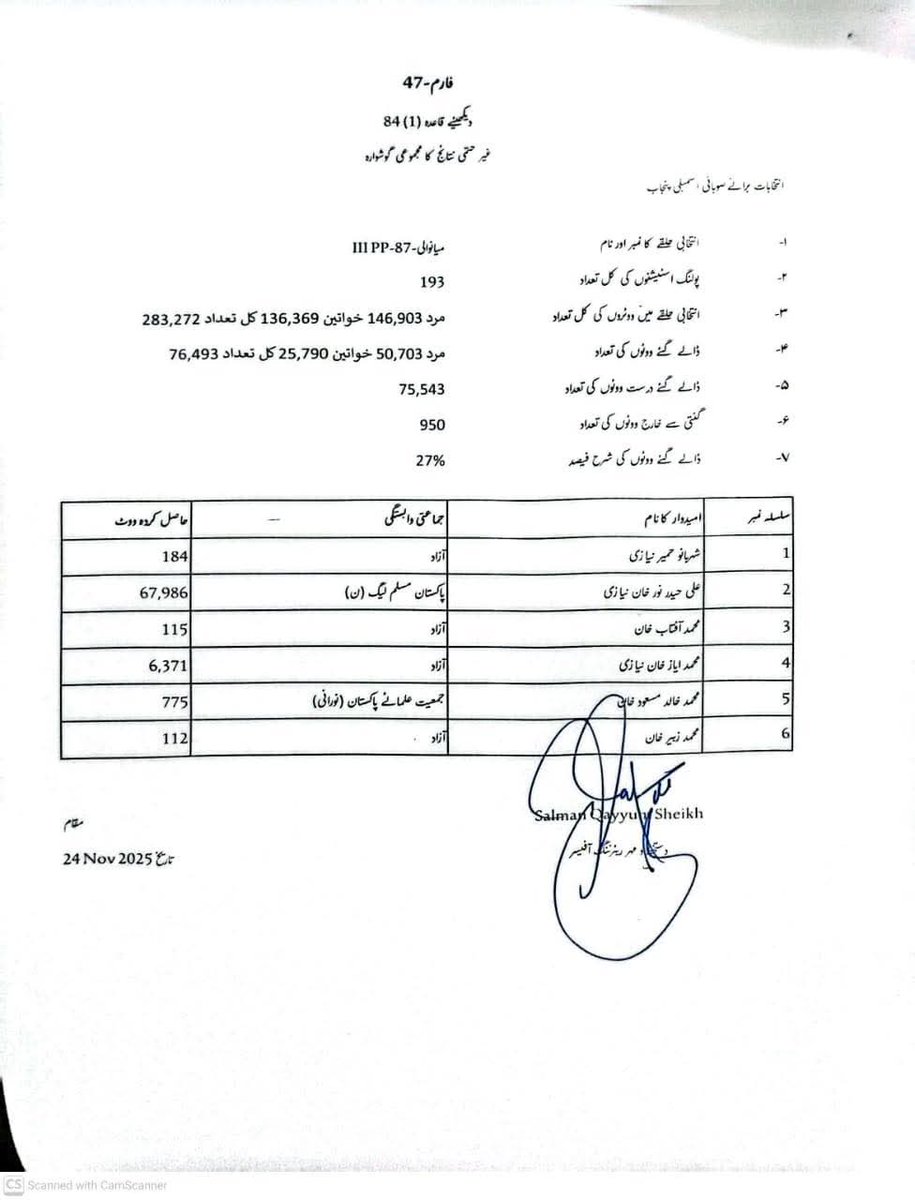 فارم-47
دیکھئیے قاعدہ (1) 84
غیر حتمی نتائج کا مجموعی گوشوارہ
انتخابات برائے صوبائی اسمبلی پنجاب
۱- انتخابی حلقے کا نمبر اور نام میانوالی-III PP-87
۲- پولنگ اسٹیشنوں کی کل تعداد 193
۳- انتخابی حلقے میں ووٹروں کی کل تعداد مرد 146,903 خواتین 136,369 کل تعداد 283,272
۴- ڈالے گئے ووٹوں کی تعداد مرد 50,703 خواتین 25,790 کل تعداد 76,493
۵- ڈالے گئے درست ووٹوں کی تعداد 75,543
۶- گنتی سے خارج ووٹوں کی تعداد 950
۷- ڈالے گئے ووٹوں کی شرح فیصد 27%
سلسلہ نمبر امیدوار کا نام جماعتی وابستگی حاصل کردہ ووٹ
1 شہربانو حمیر نیازی آزاد 184
2 علی حیدر نور خان نیازی پاکستان مسلم لیگ (ن) 67,986
3 محمد آفتاب خان آزاد 115
4 محمد ایاز خان نیازی آزاد 6,371
5 محمد خالد مسعود خان جمعیت علمائے پاکستان (نورانی) 775
6 محمد زبیر خان آزاد 112
Salman Qayyum Sheikh
دستخط و مہر ریٹرننگ آفیسر
مقام
تاریخ 24 Nov 2025
CS Scanned with CamScanner